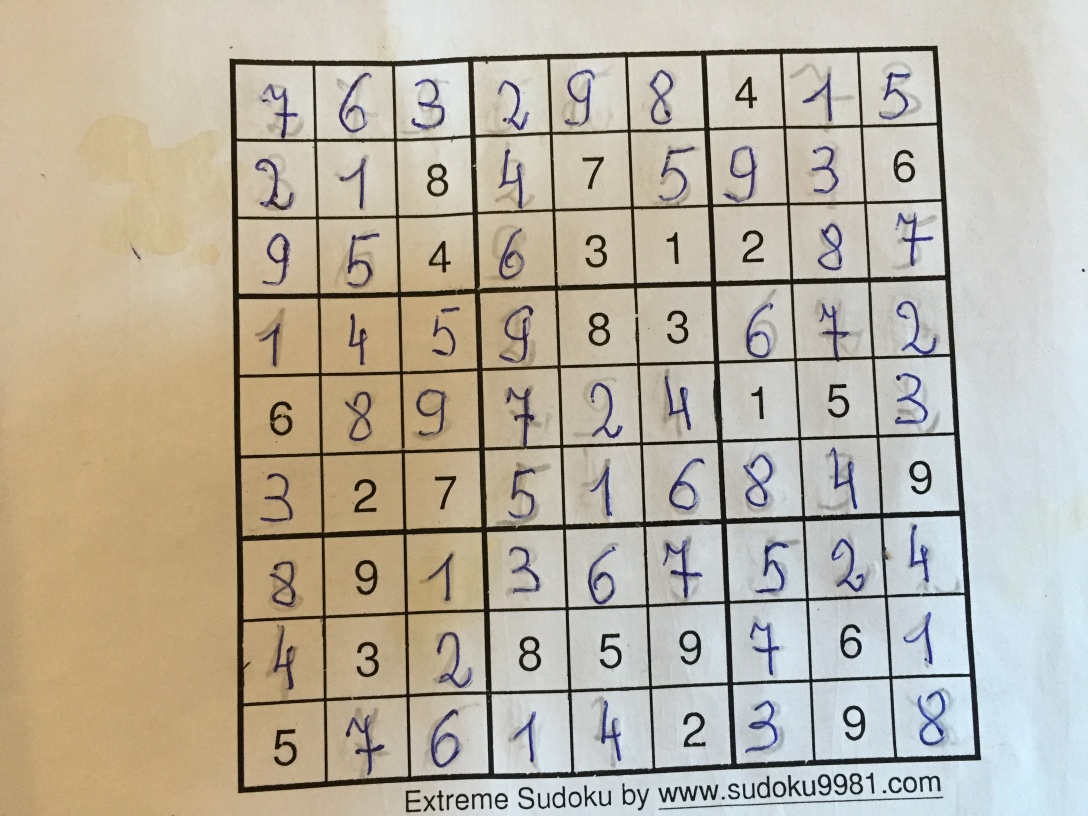 7 6 3 2 9 8 4 1 5
2 1 8 4 7 5 9 3 6
9 5 4 6 3 1 2 8 7
1 4 5 9 8 3 6 7 2
6 8 9 7 2 4 1 5 3
3 2 7 5 1 6 8 4 9
8 9 1 3 6 7 5 2 4
4 3 2 8 5 9 7 6 1
5 7 6 1 4 2 3 9 8
Extreme Sudoku by www.sudoku9981.com